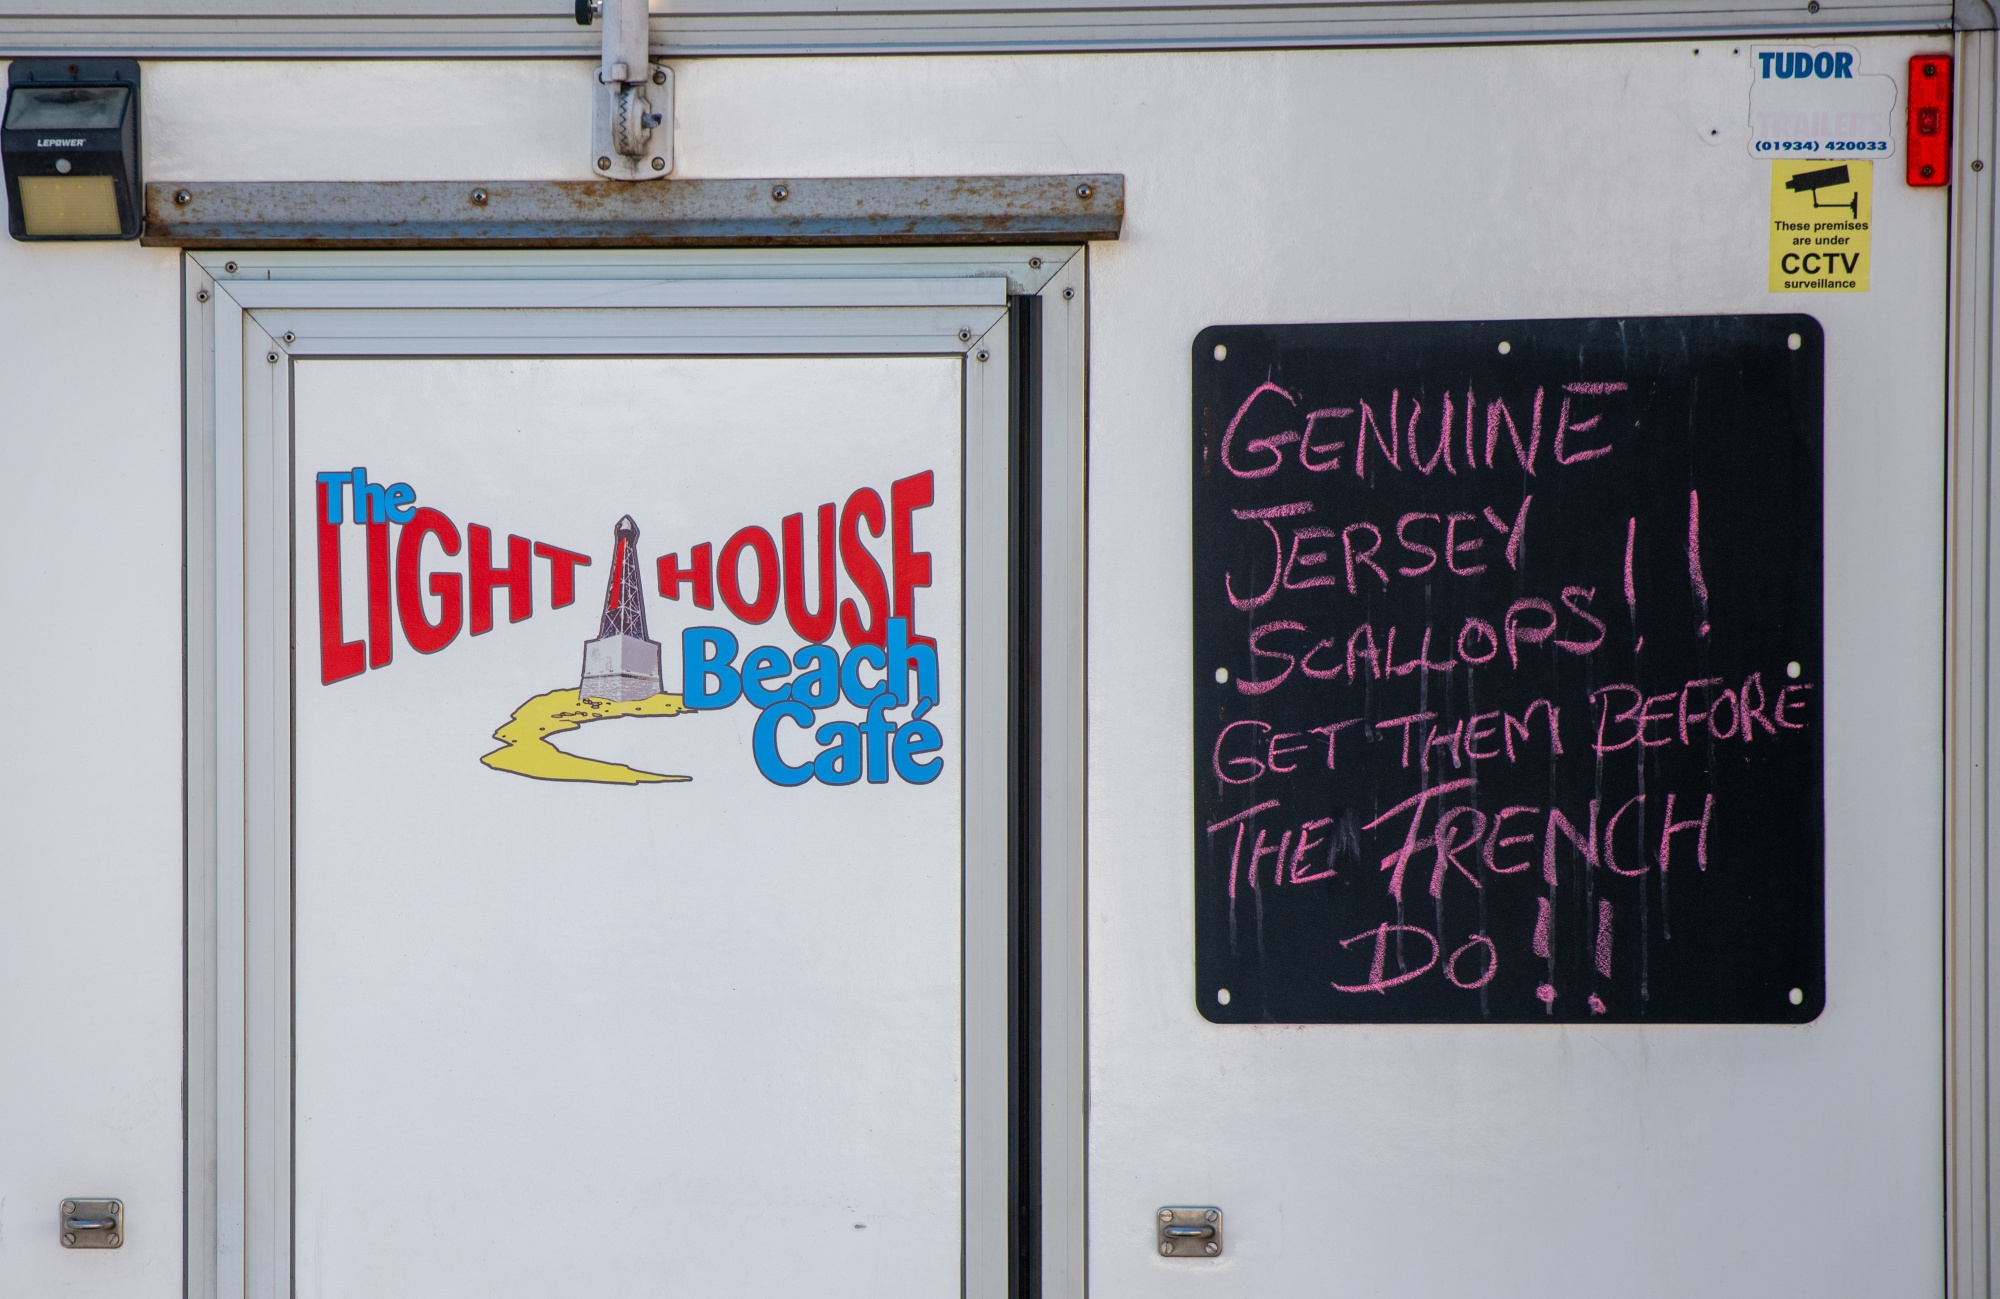 LEPOWER
TUDOR
TRAILERS
(01934) 420033
These premises
are under
CCTV
surveillance
The
LIGHT HOUSE
Beach
Café
GENUINE
JERSEY
SCALLOPS!!
GET THEM BEFORE
THE FRENCH
DO!!